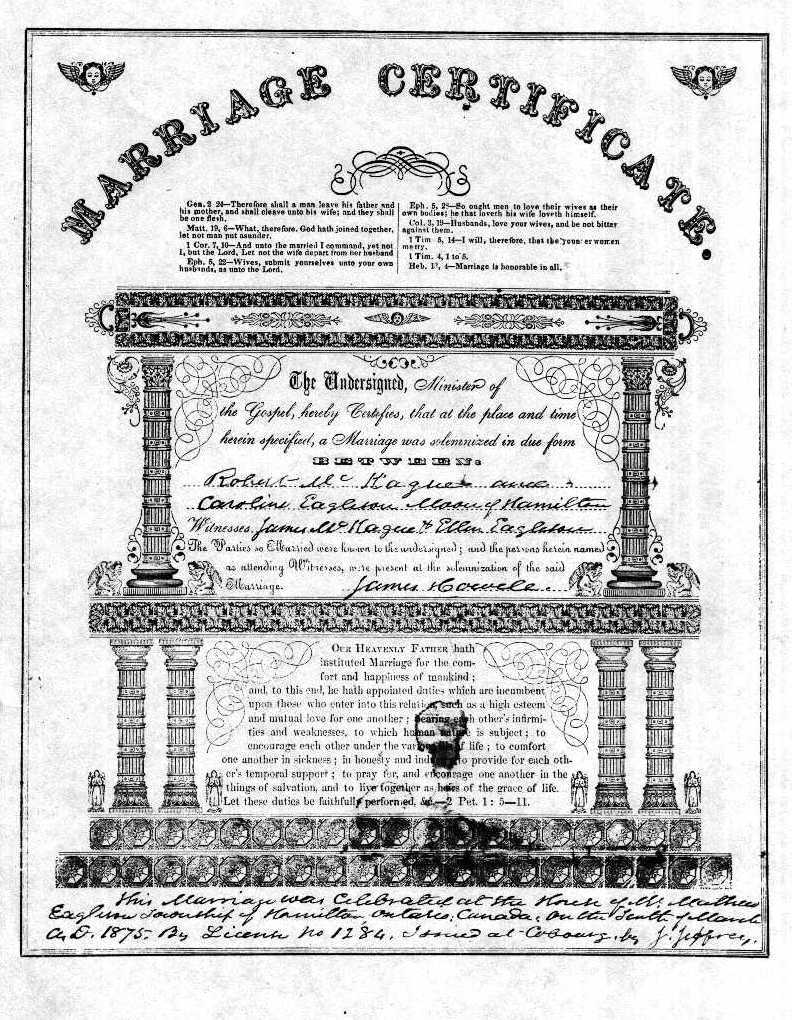 MARRIAGE CERTIFICATE.
Gen. 2 24—Therefore shall a man leave his father and
his mother, and shall cleave unto his wife; and they shall
be one flesh.
Matt. 19, 6—What, therefore, God hath joined together,
let not man put asunder.
1 Cor. 7, 10—And unto the married I command, yet not
I, but the Lord, Let not the wife depart from her husband
Eph. 5, 22—Wives, submit yourselves unto your own
husbands, as unto the Lord.
Eph. 5, 28—So ought men to love their wives as their
own bodies; he that loveth his wife loveth himself.
Col. 3, 19—Husbands, love your wives, and be not bitter
against them.
1 Tim 5, 14—I will, therefore, that the younger women
marry.
1 Tim. 4, 1 to 5.
Heb. 13, 4—Marriage is honorable in all.
The Undersigned, Minister of
the Gospel, hereby Certifies, that at the place and time
herein specified, a Marriage was solemnized in due form
BETWEEN:
Robert Mc Hague and
Caroline Eagleson Moon of Hamilton
Witnesses James McHague & Ellen Eagleson
The Parties so Married were known to the undersigned; and the persons herein named
as attending Witnesses, were present at the solemnization of the said
Marriage. James Howell
OUR HEAVENLY FATHER hath
instituted Marriage for the com-
fort and happiness of mankind;
and, to this end, he hath appointed duties which are incumbent
upon those who enter into this relation, such as a high esteem
and mutual love for one another; bearing each other's infirmi-
ties and weaknesses, to which human nature is subject; to
encourage each other under the of life; to comfort
one another in sickness; in honesty and to provide for each oth-
er's temporal support; to pray for, and encourage one another in the
things of salvation, and to live together as heirs of the grace of life.
Let these duties be faithfully performed, &c.—2 Pet. 1: 5—11.
This Marriage was Celebrated at the House of Mr Mathew
Eagleson Township of Hamilton Ontario, Canada, on the Tenth of March
A.D. 1875. By License No 1284. Issued at Cobourg. by J. Jeffrey.